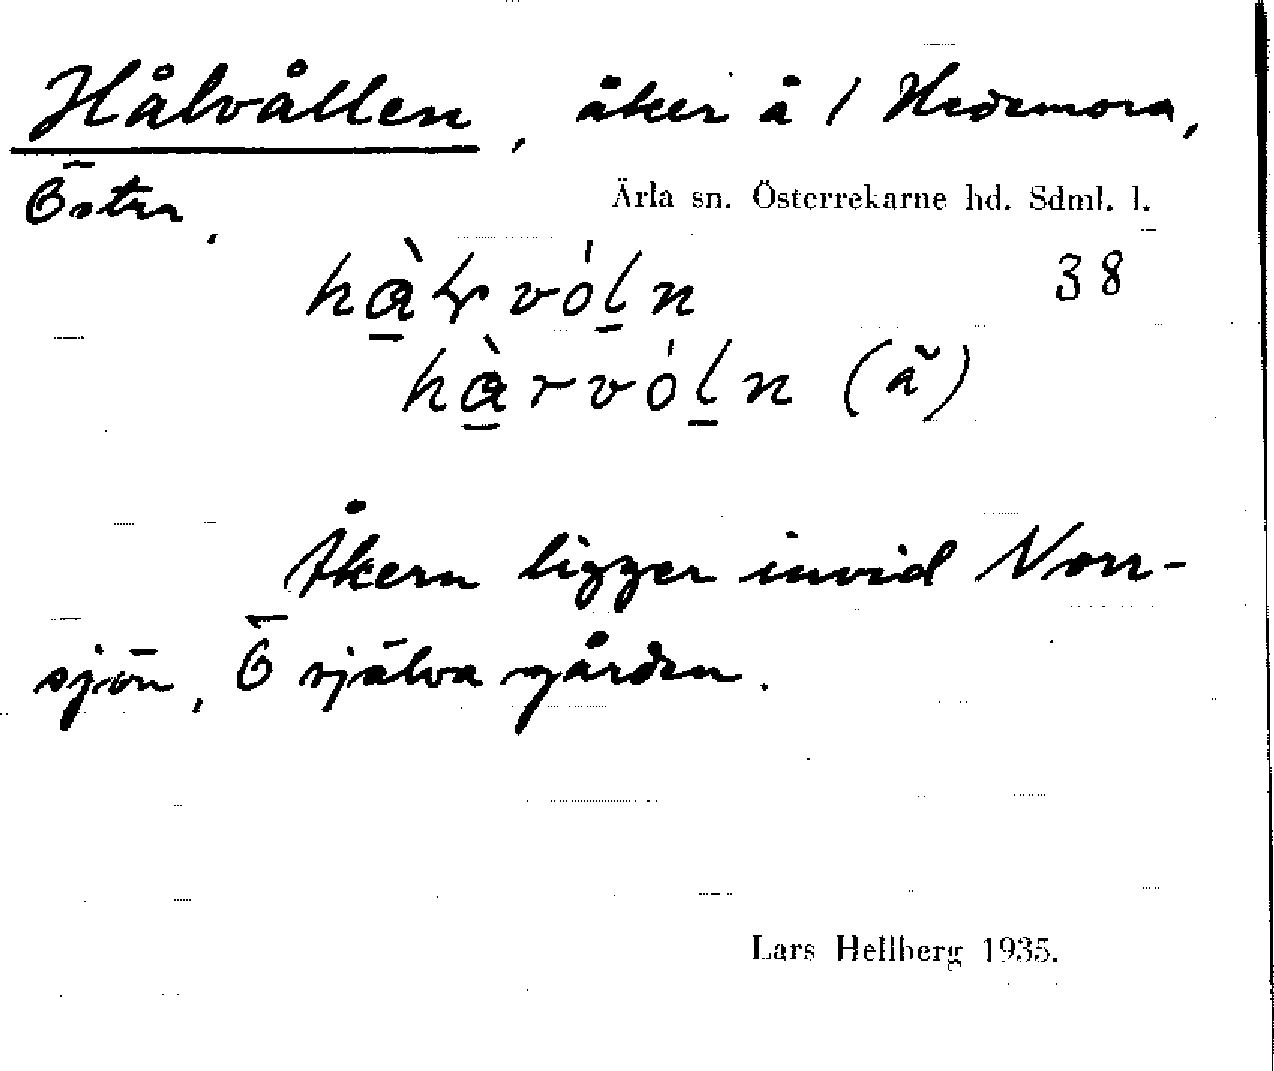 Hålvållen, åker å 1 Hedemora,
Östra,
Ärla sn. Österrekarne hd. Sdml. l.
38
(ä)
Åkern ligger invid Norr-
sjön, Ö själva gården.
Lars Hellberg 1935.